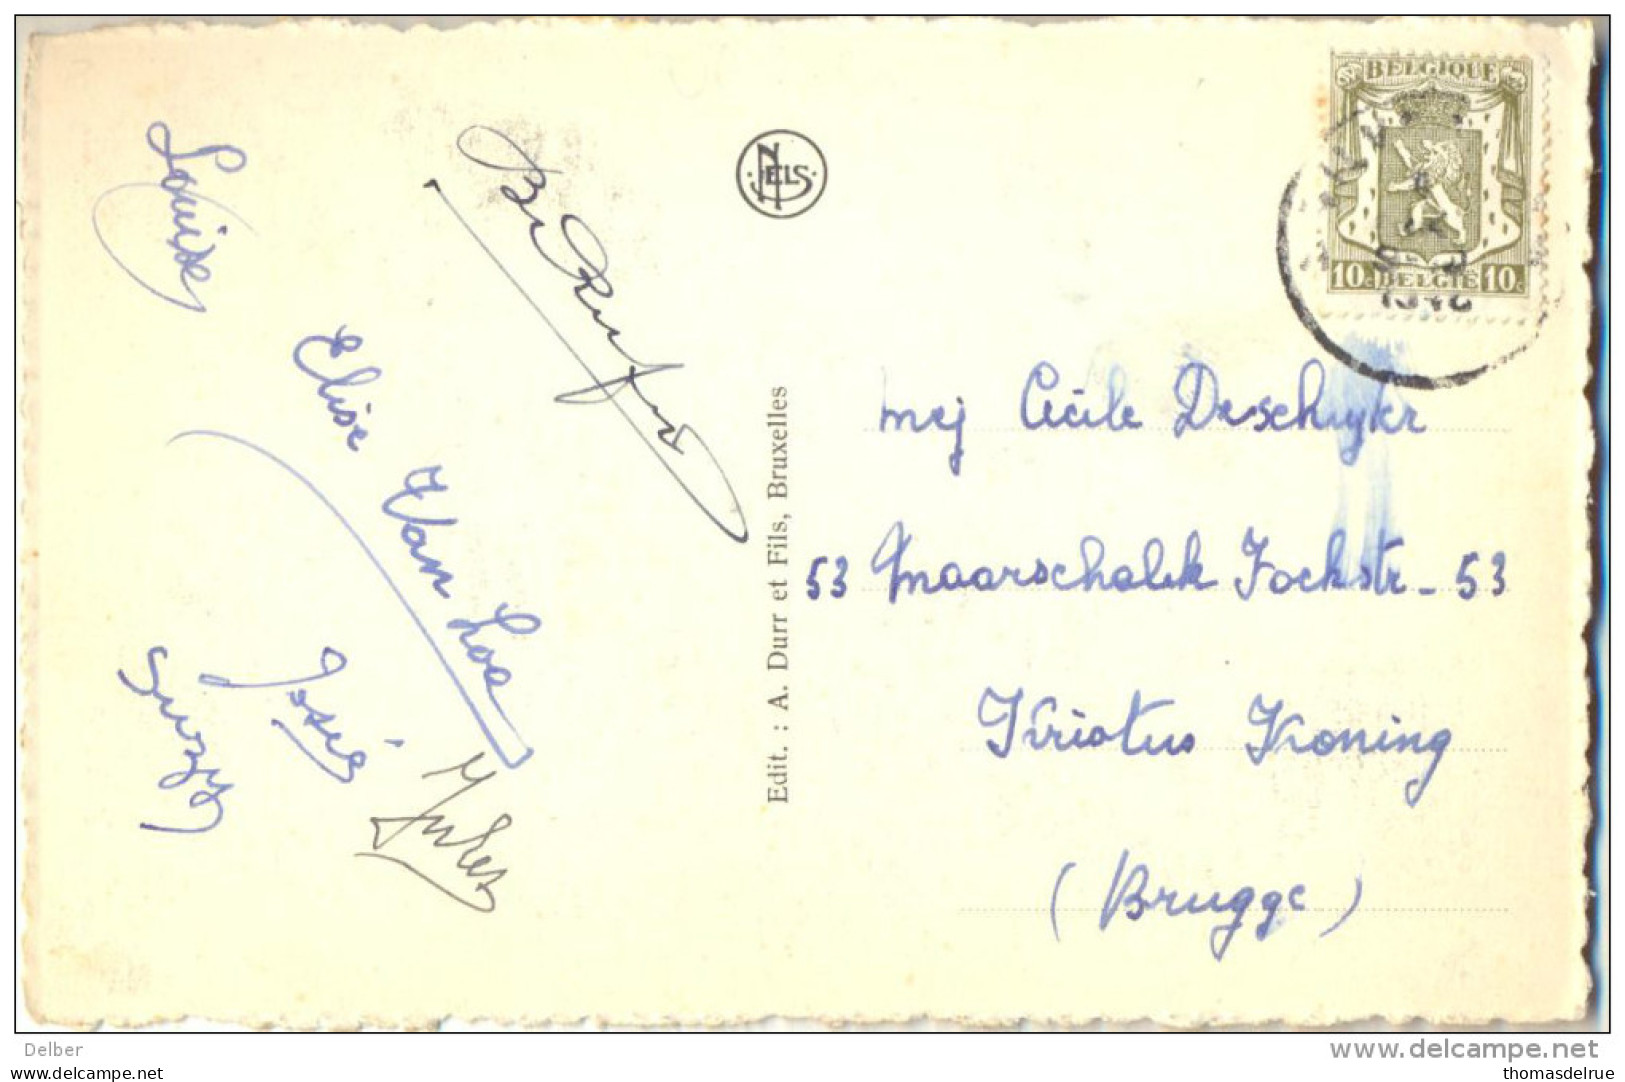 BELGIQUE
10c BELGIË 10c
NELS
Louise
Elise Van Loo
José
Suzy
Jules
Edit. : A. Durr et Fils, Bruxelles
mej Cécile Deschuyter
53 Maarschalek Fochstr - 53
Kristus Koning
(Brugge)
Delber
www.delcampe.net
www.delcampe.net
thomasdelrue